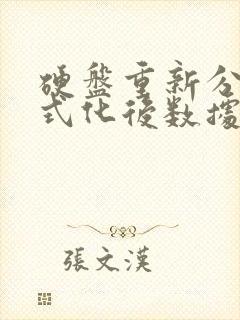 硬盘重新分
式化後数據
張文漢